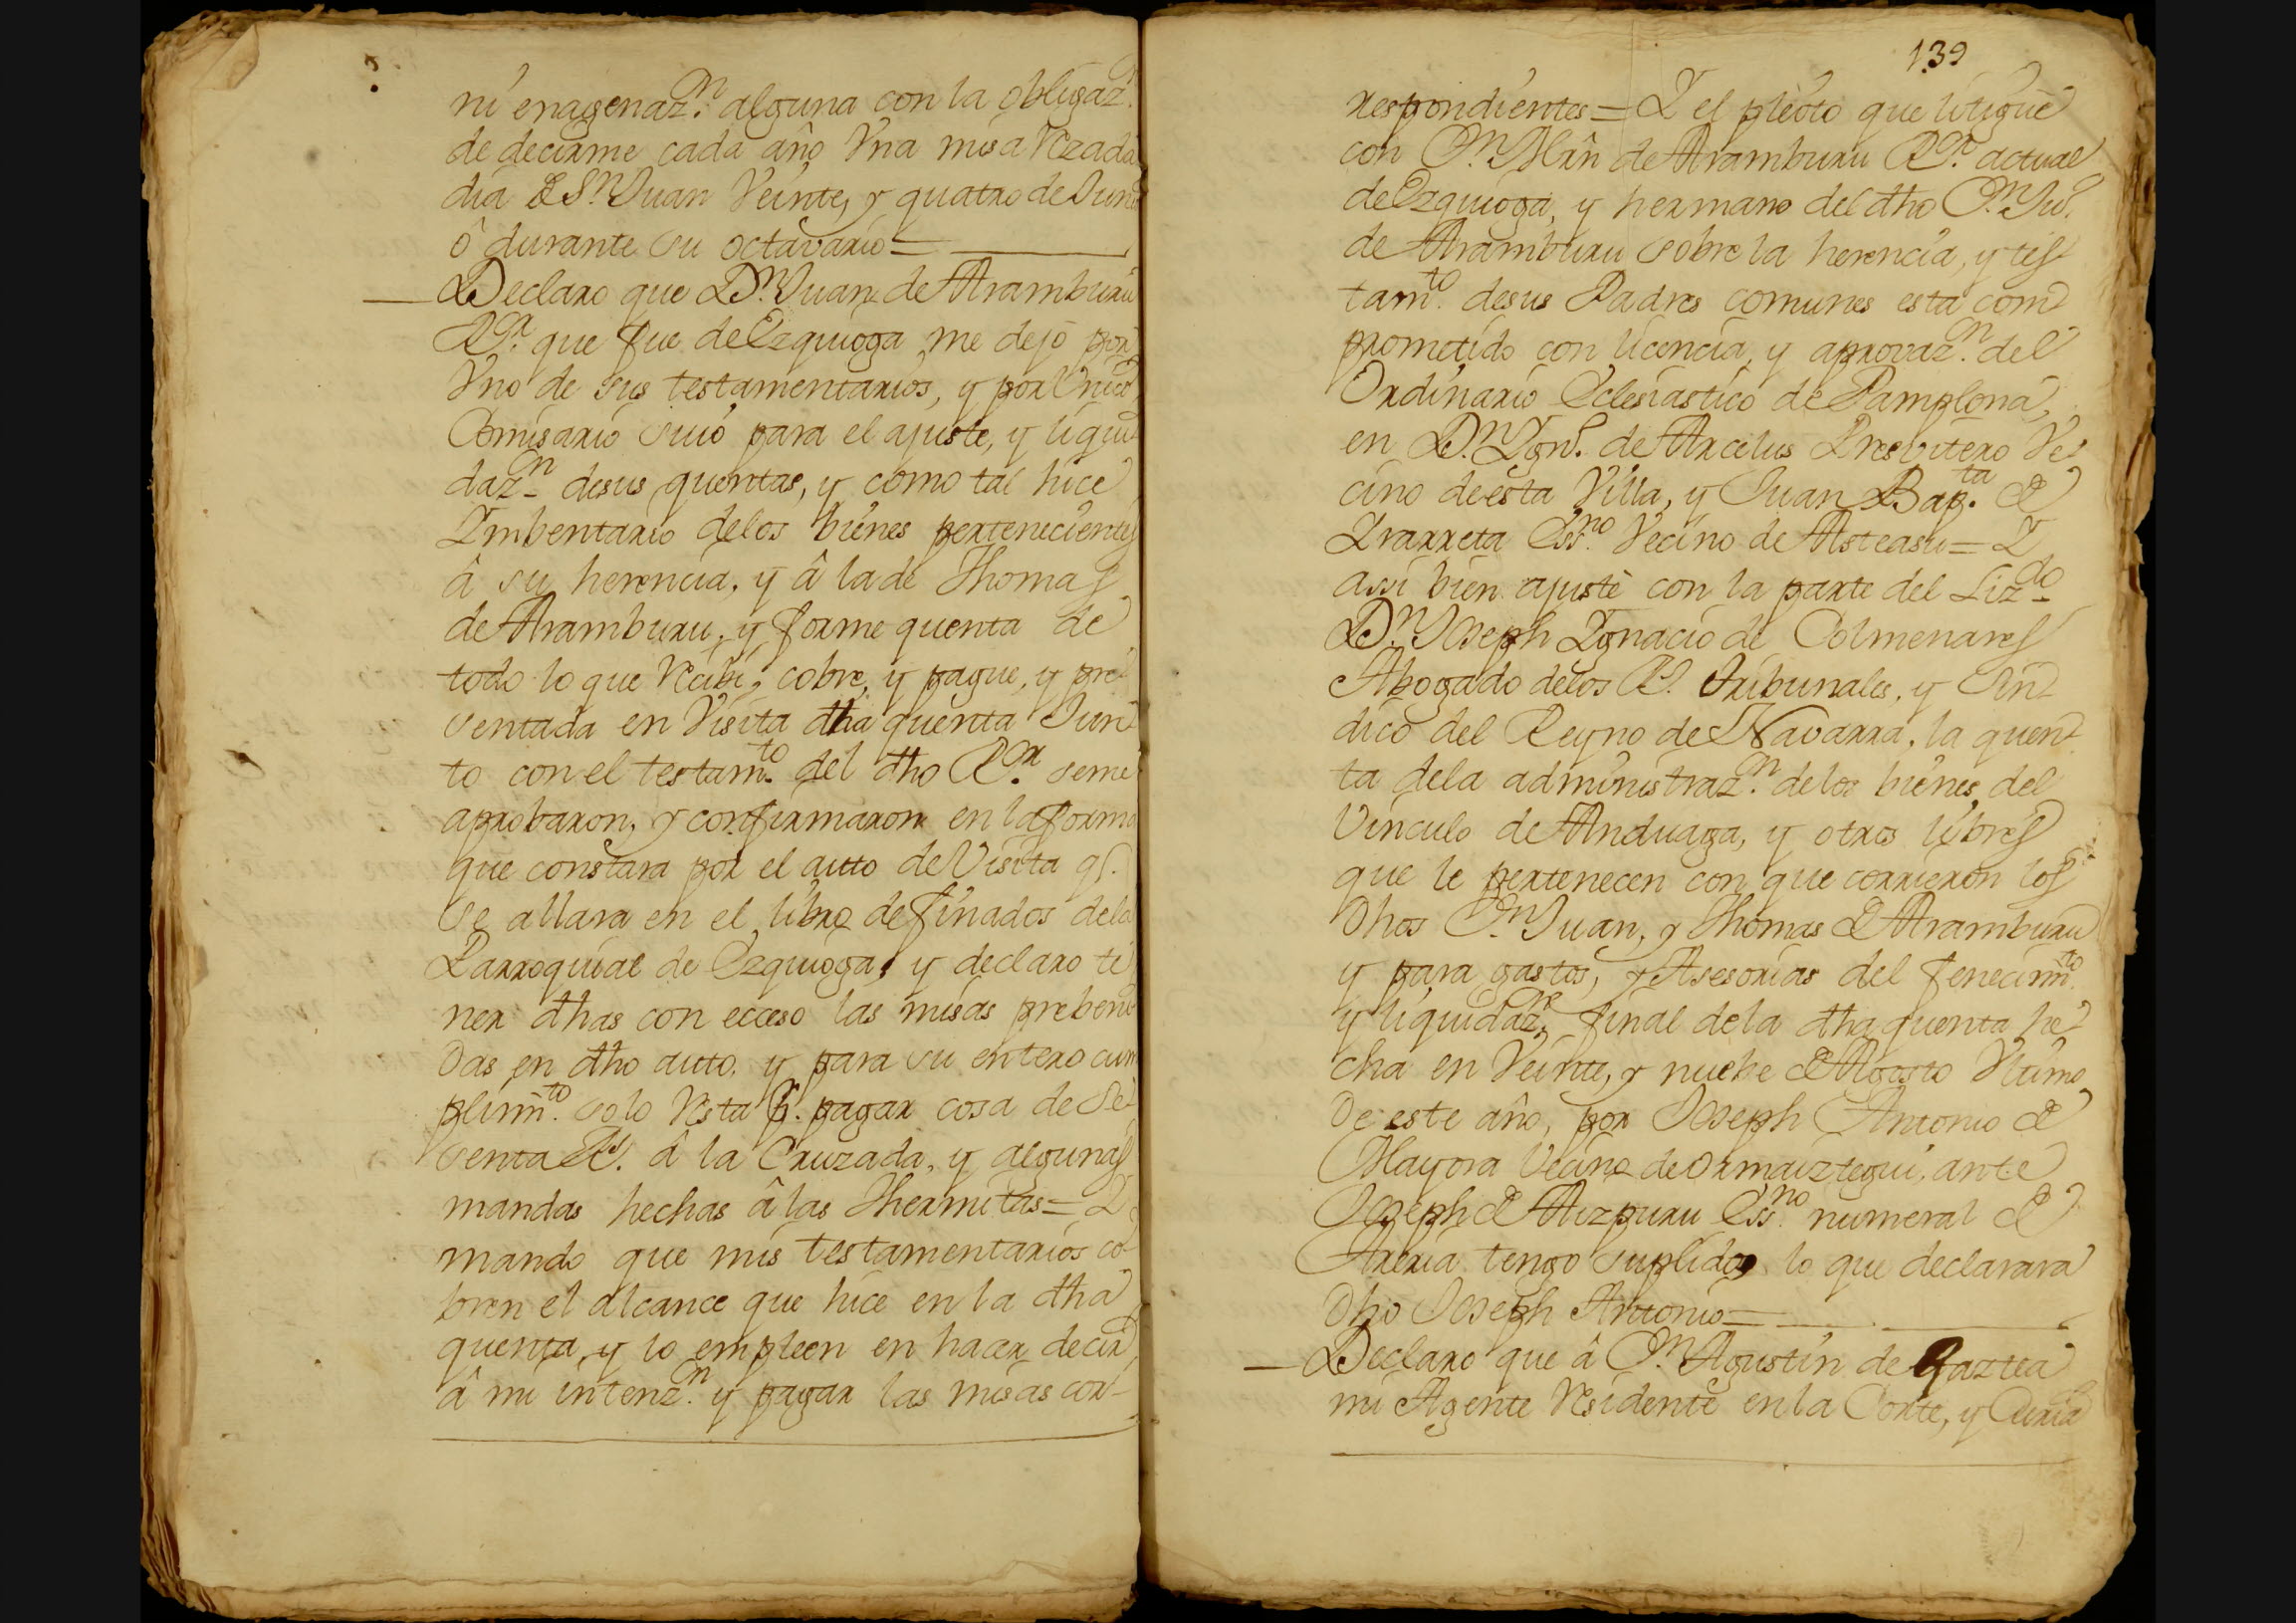 ni enagenaz.n alguna con la obligaz.n
de decirme cada año Vna misa Rezada
dia de S.n Juan Veinte, y quatro de Junio
ô durante su octavario =
Declaro que D.n Juan de Aramburu
R.or que fue de Ezquioga me dejó por
Vno de sus testamentarios, y por Unico
Comisario suio para el ajuste, y liqui
daz.n desus quentas, y como tal hice
Imbentario delos bienes pertenecientes
â su herencia, y â la de Thomas
de Aramburu, y forme quenta de
todo lo que Recibi, cobre, y pague, y pre
sentada en Visita dha quenta Jun
to con el testam.to del dho R.or seme
aprobaron, y confirmaron en la forma
que constara por el auto de Visita q.e
se allara en el libro de finados dela
Parroquial de Ezquioga, y declaro te
ner dhas con ecceso las misas preveni
das en dho auto, y para su entero cum
plim.to solo Resta p.r pagar cosa de Se
senta R.s â la Cruzada, y algunas
mandas hechas â las Hermitas = Y
mando que mis testamentarios co
bren el alcance que hice en la dha
quenta, y lo empleen en hacer decir
â mi intenz.n y pagar las misas cor-
139
respondientes = Y el pleito que litigue
con D.n Mrñ de Aramburu R.or actual
de Ezquioga, y hermano del dho D.n Ju.
de Aramburu sobre la herencia, y tes
tam.to desus Padres comunes esta com
prometido con licencia, y aprovaz.n del
Ordinario Eclesiastico de Pamplona,
en D.n Ign.o de Arcelus Presbitero Ve
cino deesta Villa, y Juan Bap.ta de
Irarreta Ess.no Vecino de Asteasu = Y
assi bien ajustè con la parte del Liz.do
D.n Joseph Ignacio de Colmenares
Abogado delos R.s Tribunales, y Sin
dico del Reyno de Navarra, la quen
ta dela administraz.n delos bienes del
Vinculo de Anduaga, y otros libres
que le pertenecen con que corrieron los
dhos D.n Juan, y Thomas de Aramburu
y para gastos, y Asesorias del fenecim.to
y liquidaz.n final dela dha quenta he
cha en Veinte, y nuebe de Agosto Vltimo
de este año, por Joseph Antonio de
Mayora Vecino de Ormaiztegui, ante
Joseph de Aizpuru Ess.no numeral de
Areria tengo suplido lo que declarara
dho Joseph Antonio =
Declaro que â D.n Agustin de Gaztea
mi Agente Residente en la Corte, y Curia